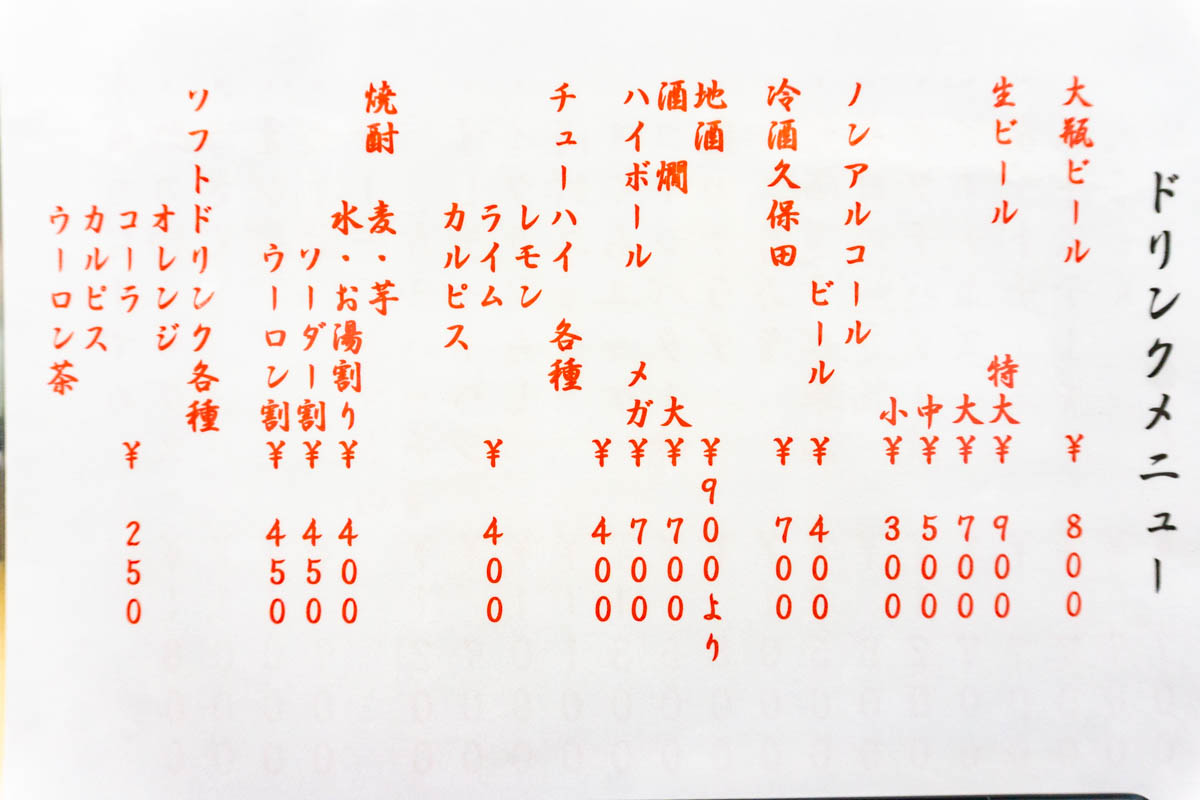 ドリンクメニュー
大瓶ビール ¥800
生ビール 特大¥900
大¥700
中¥500
小¥300
ノンアルコール
ビール ¥400
冷酒久保田 ¥700
地酒 ¥900より
酒 燗 大¥700
ハイボール メガ¥700
¥400
チューハイ 各種
レモン
ライム ¥400
カルピス
焼酎 麦・芋
水・お湯割り¥400
ソーダー割¥450
ウーロン割¥450
ソフトドリンク各種
オレンジ
コーラ ¥250
カルピス
ウーロン茶